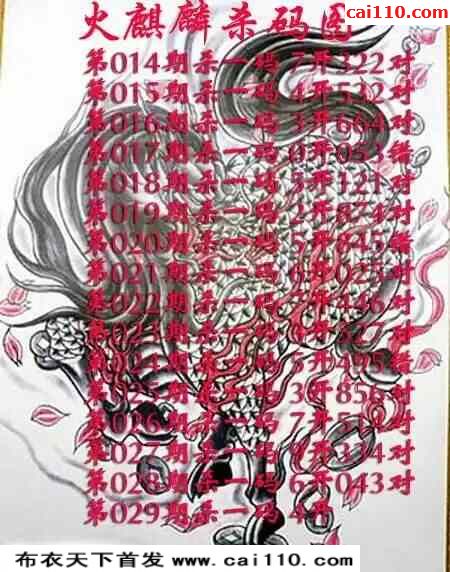 cai110.com
火麒麟杀码图
第014期杀一码 7开322对
第015期杀一码 4开532对
第016期杀一码 3开664对
第017期杀一码 0开053错
第018期杀一码 5开121对
第019期杀一码 2开874对
第020期杀一码 5开845错
第021期杀一码 6开025对
第022期杀一码 7开446对
第023期杀一码 开527对
第024期杀一码 5开 错
第025期杀一码 3开856对
第026期杀一码 7开 对
第027期杀一码 开334对
第028期杀一码 6开043对
第029期杀一码 4开
布衣天下首发 www.cai110.com